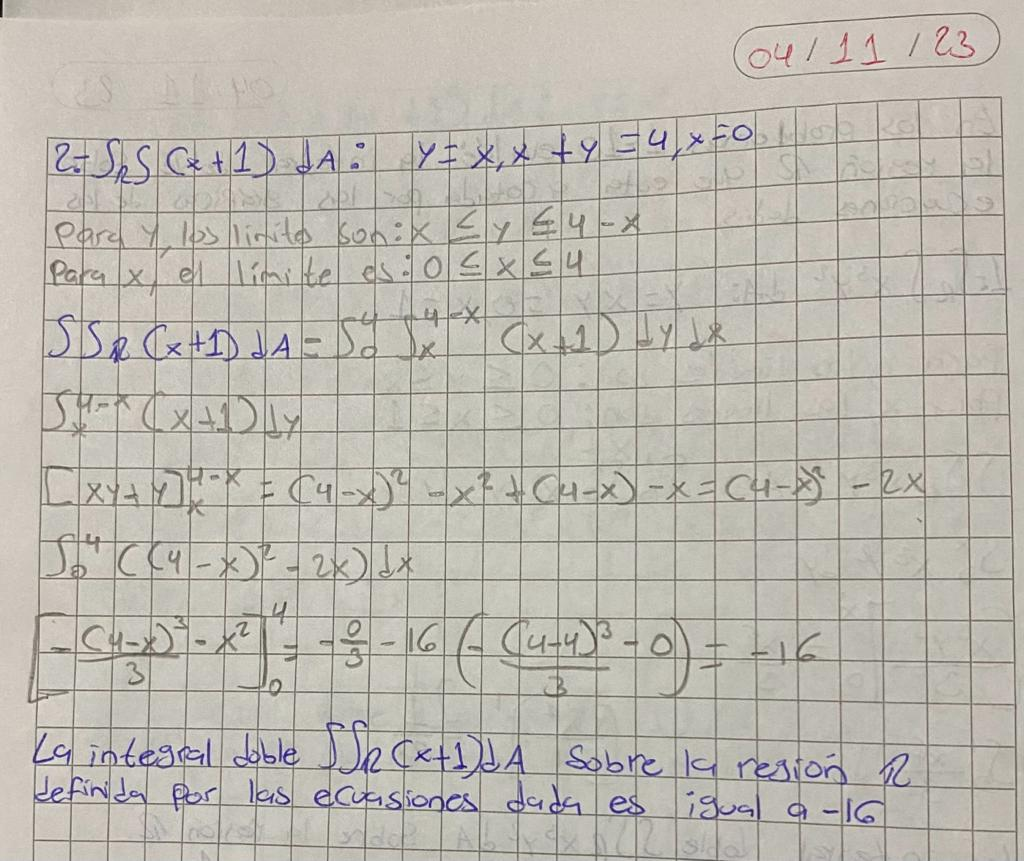 04/11/23
2=∫R∫ (x+1) dA: y=x, x+y=4, x=0
Para y, los limites son: x ≤ y ≤ 4-x
Para x, el limite es: 0 ≤ x ≤ 4
∫∫R (x+1) dA = ∫₀⁴ ∫ₓ⁴⁻ˣ (x+1) dy dx
∫ₓ⁴⁻ˣ (x+1) dy
[xy+y]ₓ⁴⁻ˣ = (4-x)² - x² + (4-x) - x = (4-x)² - 2x
∫₀⁴ ((4-x)² - 2x) dx
[-(4-x)³/3 - x²]₀⁴ = -0/3 - 16 (-(4-4)³/3 - 0) = -16
La integral doble ∫∫R (x+1) dA Sobre la resión R
definida por las ecuasiones dada es igual a -16